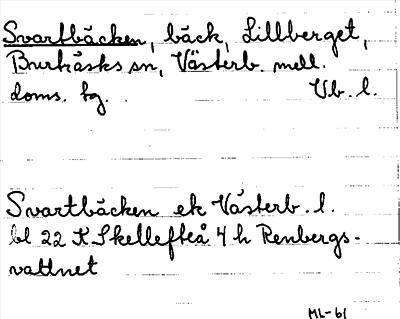 Svartbäcken, bäck, Lillberget,
Burträsks sn, Västerb. mell.
doms. tg. Vb. l.
Svartbäcken ek Västerb. l.
bl 22 K Skellefteå 4 h Renbergs-
vattnet
ML-61